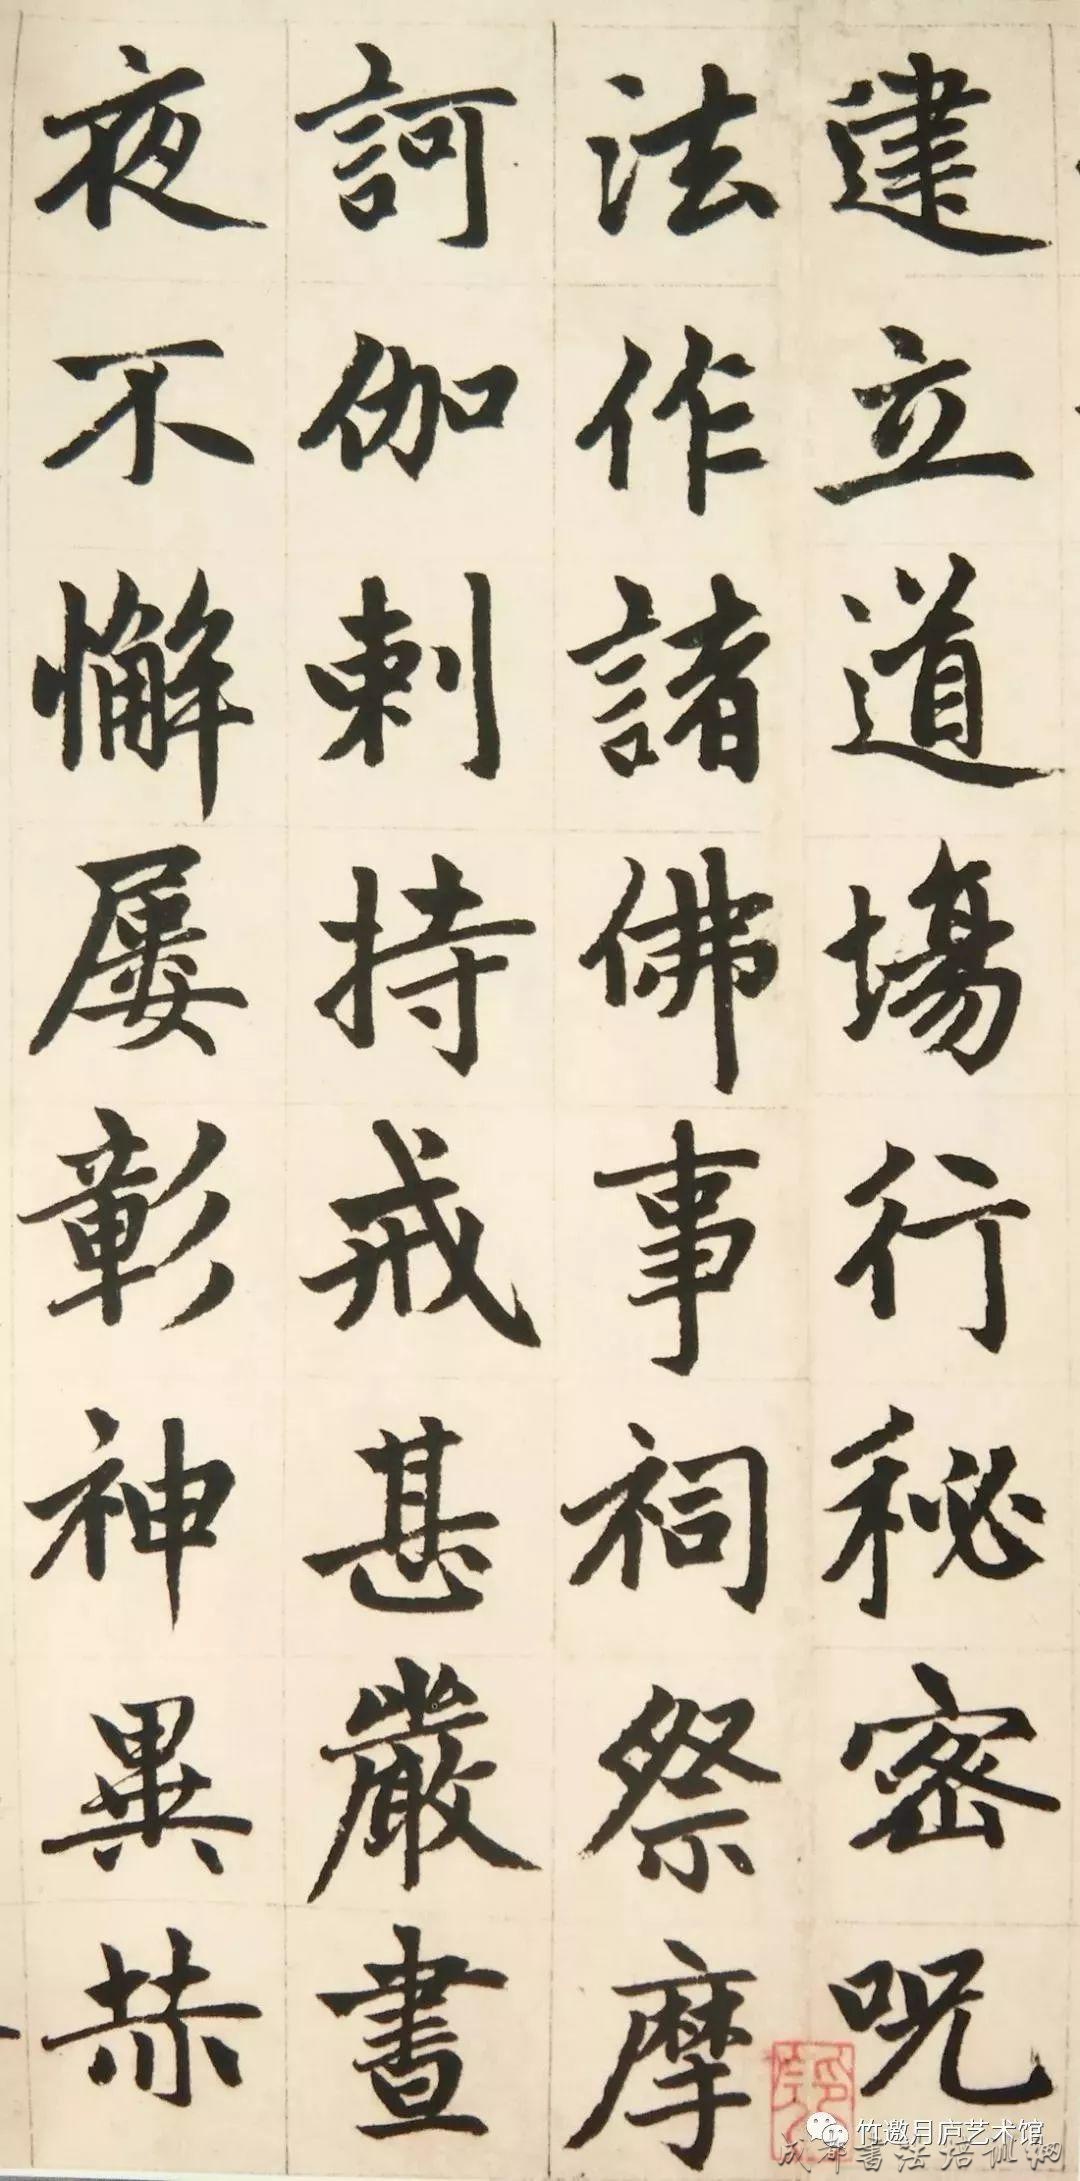 建立道場行秘密呪
法作諸佛事祠祭摩
訶伽剌持戒甚嚴晝
夜不懈屢彰神異赫
竹邀月庐艺术馆
成都書法培训網